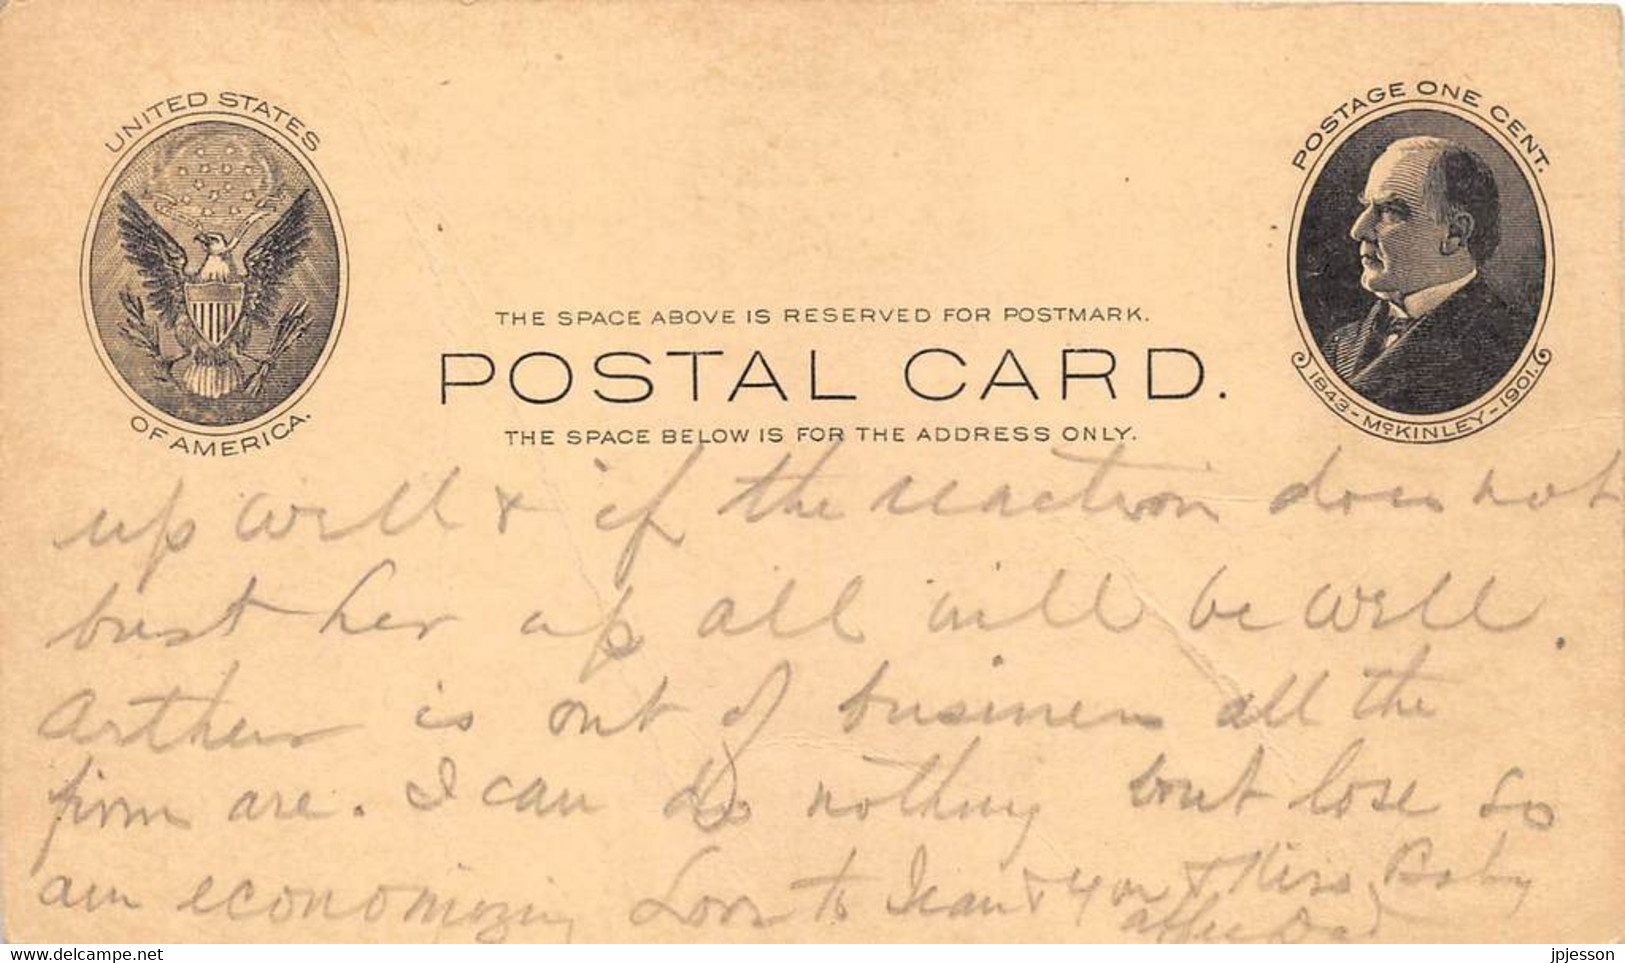 UNITED STATES
OF AMERICA.
POSTAGE ONE CENT.
1843 - McKINLEY - 1901.
THE SPACE ABOVE IS RESERVED FOR POSTMARK.
POSTAL CARD.
THE SPACE BELOW IS FOR THE ADDRESS ONLY.
up well & if the reaction does not
bust her up all will be well.
Arthur is out of business all the
firm are. I can do nothing but lose so
am economizing Love to Jean & you & Kiss Baby
Dad
delcampe.net
jpjesson